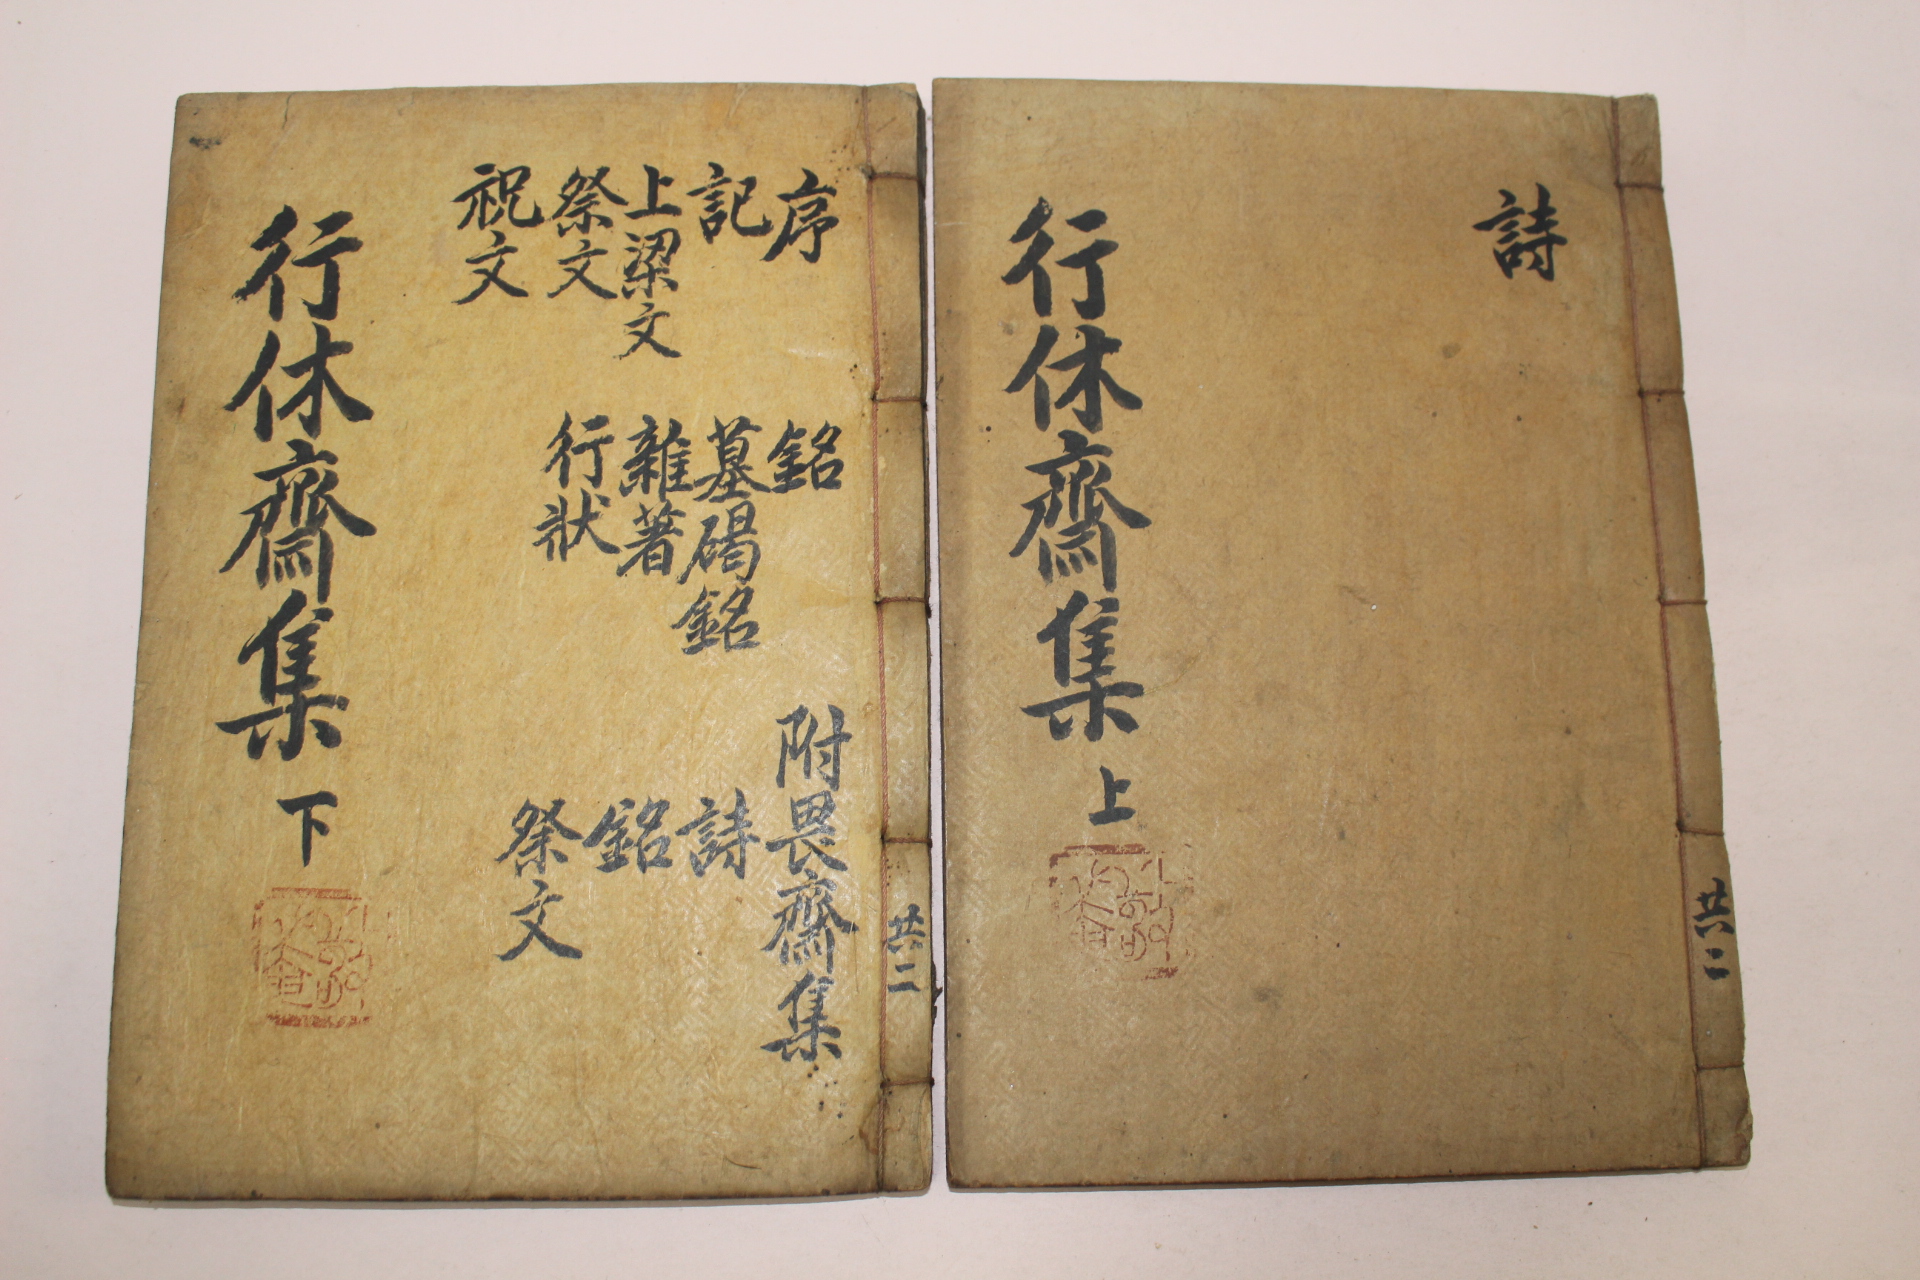 詩
行休齋集 上
共二
序
記
上梁文
祭文
祝文
銘
墓碣銘
雜著
行狀
附畏齋集
詩
銘
祭文
行休齋集 下
共二